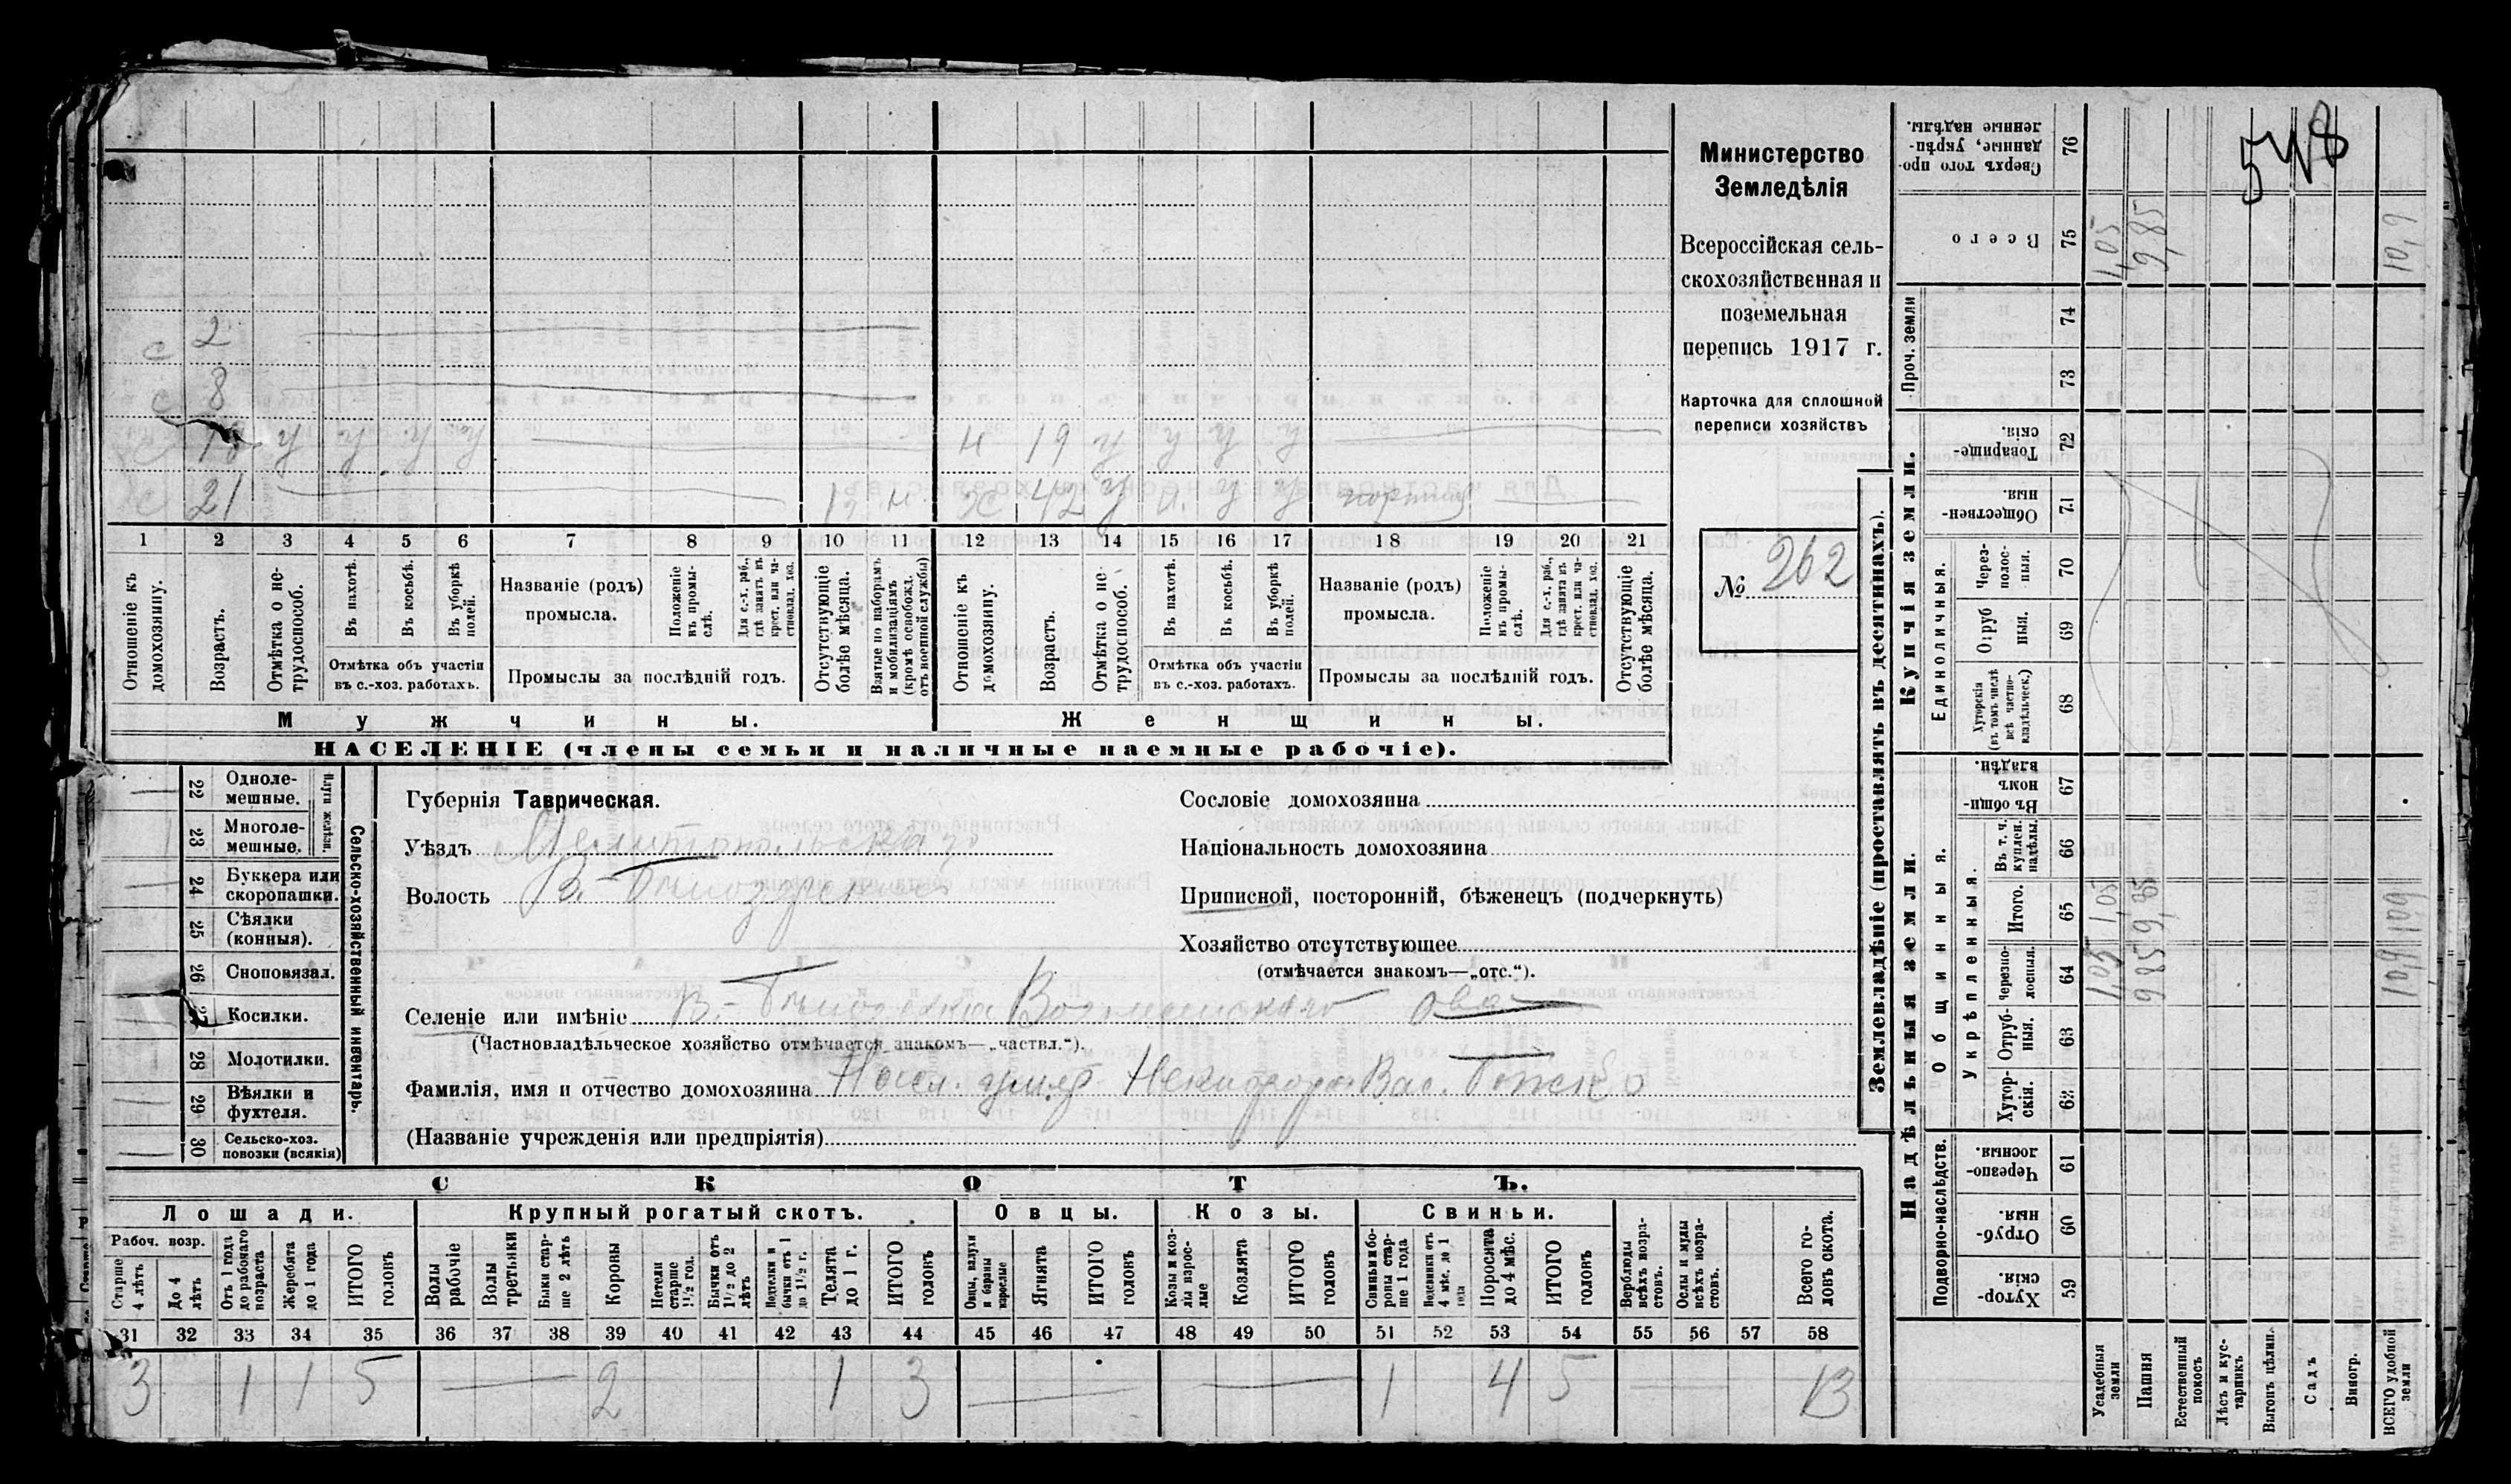 Министерство
Земледѣлія
Всероссійская сель-
скохозяйственная и
поземельная
перепись 1917 г.
Карточка для сплошной
переписи хозяйствъ
№ 262
548
с 2
с 8
с 18 у у у у
ж 19 у у у у
с 21
ж 42 у у у у
1 2 3 4 5 6 7 8 9 10 11 12 13 14 15 16 17 18 19 20 21
Отношеніе къ домохозяину.
Возрастъ.
Отмѣтка о не-трудоспособ.
Въ пахотѣ.
Въ косьбѣ.
Въ уборкѣ полей.
Отмѣтка объ участіи
въ с.-хоз. работахъ.
Названіе (родъ)
промысла.
Положеніе въ промы-слѣ.
Для с.-х. раб., гдѣ занятъ въ крест. или ча-стновлад. хоз.
Промыслы за послѣдній годъ.
Отсутствующіе болѣе мѣсяца.
Взятые по наборамъ и мобилизаціямъ (кромѣ освобожд. отъ военной службы)
Отношеніе къ домохозяину.
Возрастъ.
Отмѣтка о не-трудоспособ.
Въ пахотѣ.
Въ косьбѣ.
Въ уборкѣ полей.
Отмѣтка объ участіи
въ с.-хоз. работахъ.
Названіе (родъ)
промысла.
Положеніе въ промы-слѣ.
Для с.-х. раб., гдѣ занятъ въ крест. или ча-стновлад. хоз.
Промыслы за послѣдній годъ.
Отсутствующіе болѣе мѣсяца.
Мужчины.
Женщины.
НАСЕЛЕНІЕ (члены семьи и наличные наемные рабочіе).
Сельско-хозяйственный инвентарь.
Плуги желѣзн.
22 Одноле-мешные.
23 Многоле-мешные.
24 Буккера или скоропашки.
25 Сѣялки (конныя).
26 Сноповязал.
27 Косилки.
28 Молотилки.
29 Вѣялки и фухтеля.
30 Сельско-хоз. повозки (всякія)
Губернія Таврическая.
Уѣздъ Мелитопольскаго
Волость В.-Бѣлозерской
Селеніе или имѣніе В.-Бѣлозерка Вознесенского о-ва
(Частновладѣльческое хозяйство отмѣчается знакомъ—„частвл.“).
Фамилія, имя и отчество домохозяина
(Названіе учрежденія или предпріятія)
Сословіе домохозяина
Національность домохозяина
Приписной, посторонній, бѣженецъ (подчеркнуть)
Хозяйство отсутствующее
(отмѣчается знакомъ—„отс.“).
СКОТЪ.
Лошади.
Крупный рогатый скотъ.
Овцы.
Козы.
Свиньи.
Рабоч. возр.
Старше 4 лѣтъ
До 4 лѣтъ
Отъ 1 года до рабочаго возраста
Жеребята до 1 года
ИТОГО головъ
Волы рабочіе
Волы третьяки
Быки стар-ше 2 лѣтъ
Коровы
Нетели старше 1½ год.
Бычки отъ 1½ до 2 лѣтъ
Подтелки и бычки отъ 1 до 1½ г.
Телята до 1 г.
ИТОГО головъ
Овцы, валухи и бараны взрослые
Ягнята
ИТОГО головъ
Козы и коз-лы взрос-лые
Козлята
ИТОГО головъ
Свиньи и бо-ровы стар-ше 1 года
Подсвинки отъ 4 мѣс. до 1 года
Поросята до 4 мѣс.
ИТОГО головъ
Верблюды всѣхъ возра-стовъ.
Ослы и мулы всѣхъ возра-стовъ.
Всего го-ловъ скота.
31 32 33 34 35 36 37 38 39 40 41 42 43 44 45 46 47 48 49 50 51 52 53 54 55 56 57 58
3 1 1 5 2 1 3 1 4 5 13
Землевладѣніе (проставлять въ десятинахъ).
Купчія земли.
Надѣльныя земли.
Проч. земли
Единоличныя.
Общинныя.
Укрѣпленныя.
Подворно-наслѣдств.
76 Сверхъ того про-данные, укрѣп-ленные надѣлы.
75 Всего
74
73
72 Товарище-скія.
71 Обществен-ныя.
70 Через-полос-ныя.
69 Отруб-ныя.
68 Хуторскія (въ томъ числѣ всѣ частно-владѣльческ.)
67 Въ общин-номъ владѣн.
66 Въ т. ч. куплен. надѣлы.
65 Итого.
64 Черезпо-лосныя.
63 Отруб-ныя.
62 Хутор-скія.
61 Черезпо-лосныя.
60 Отруб-ныя
59 Хутор-скія.
Усадебныя земли 1,05 1,05 1,05
Пашня 9,85 9,85 9,85
Естественный покосъ
Лѣсъ и кус-тарникъ
Выгонъ цѣлин.
Садъ
Виногр.
ВСЕГО удобной земли 10,9 10,9 10,9